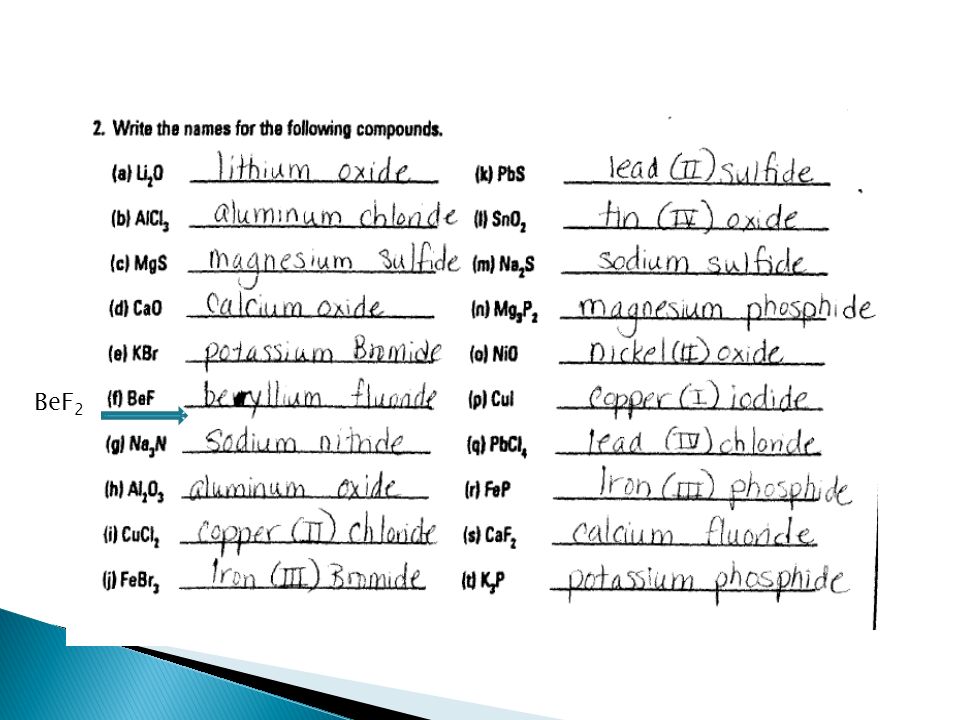 2. Write the names for the following compounds.
(a) Li₂O lithium oxide
(b) AlCl₃ aluminum chloride
(c) MgS magnesium sulfide
(d) CaO calcium oxide
(e) KBr potassium Bromide
BeF₂
(f) BeF beryllium fluoride
(g) Na₃N sodium nitride
(h) Al₂O₃ aluminum oxide
(i) CuCl₂ copper (II) chloride
(j) FeBr₃ Iron (III) Bromide
(k) PbS lead (II) sulfide
(l) SnO₂ tin (IV) oxide
(m) Na₂S sodium sulfide
(n) Mg₃P₂ magnesium phosphide
(o) NiO nickel (II) oxide
(p) CuI copper (I) iodide
(q) PbCl₄ lead (IV) chloride
(r) FeP Iron (III) phosphide
(s) CaF₂ calcium fluoride
(t) K₃P potassium phosphide